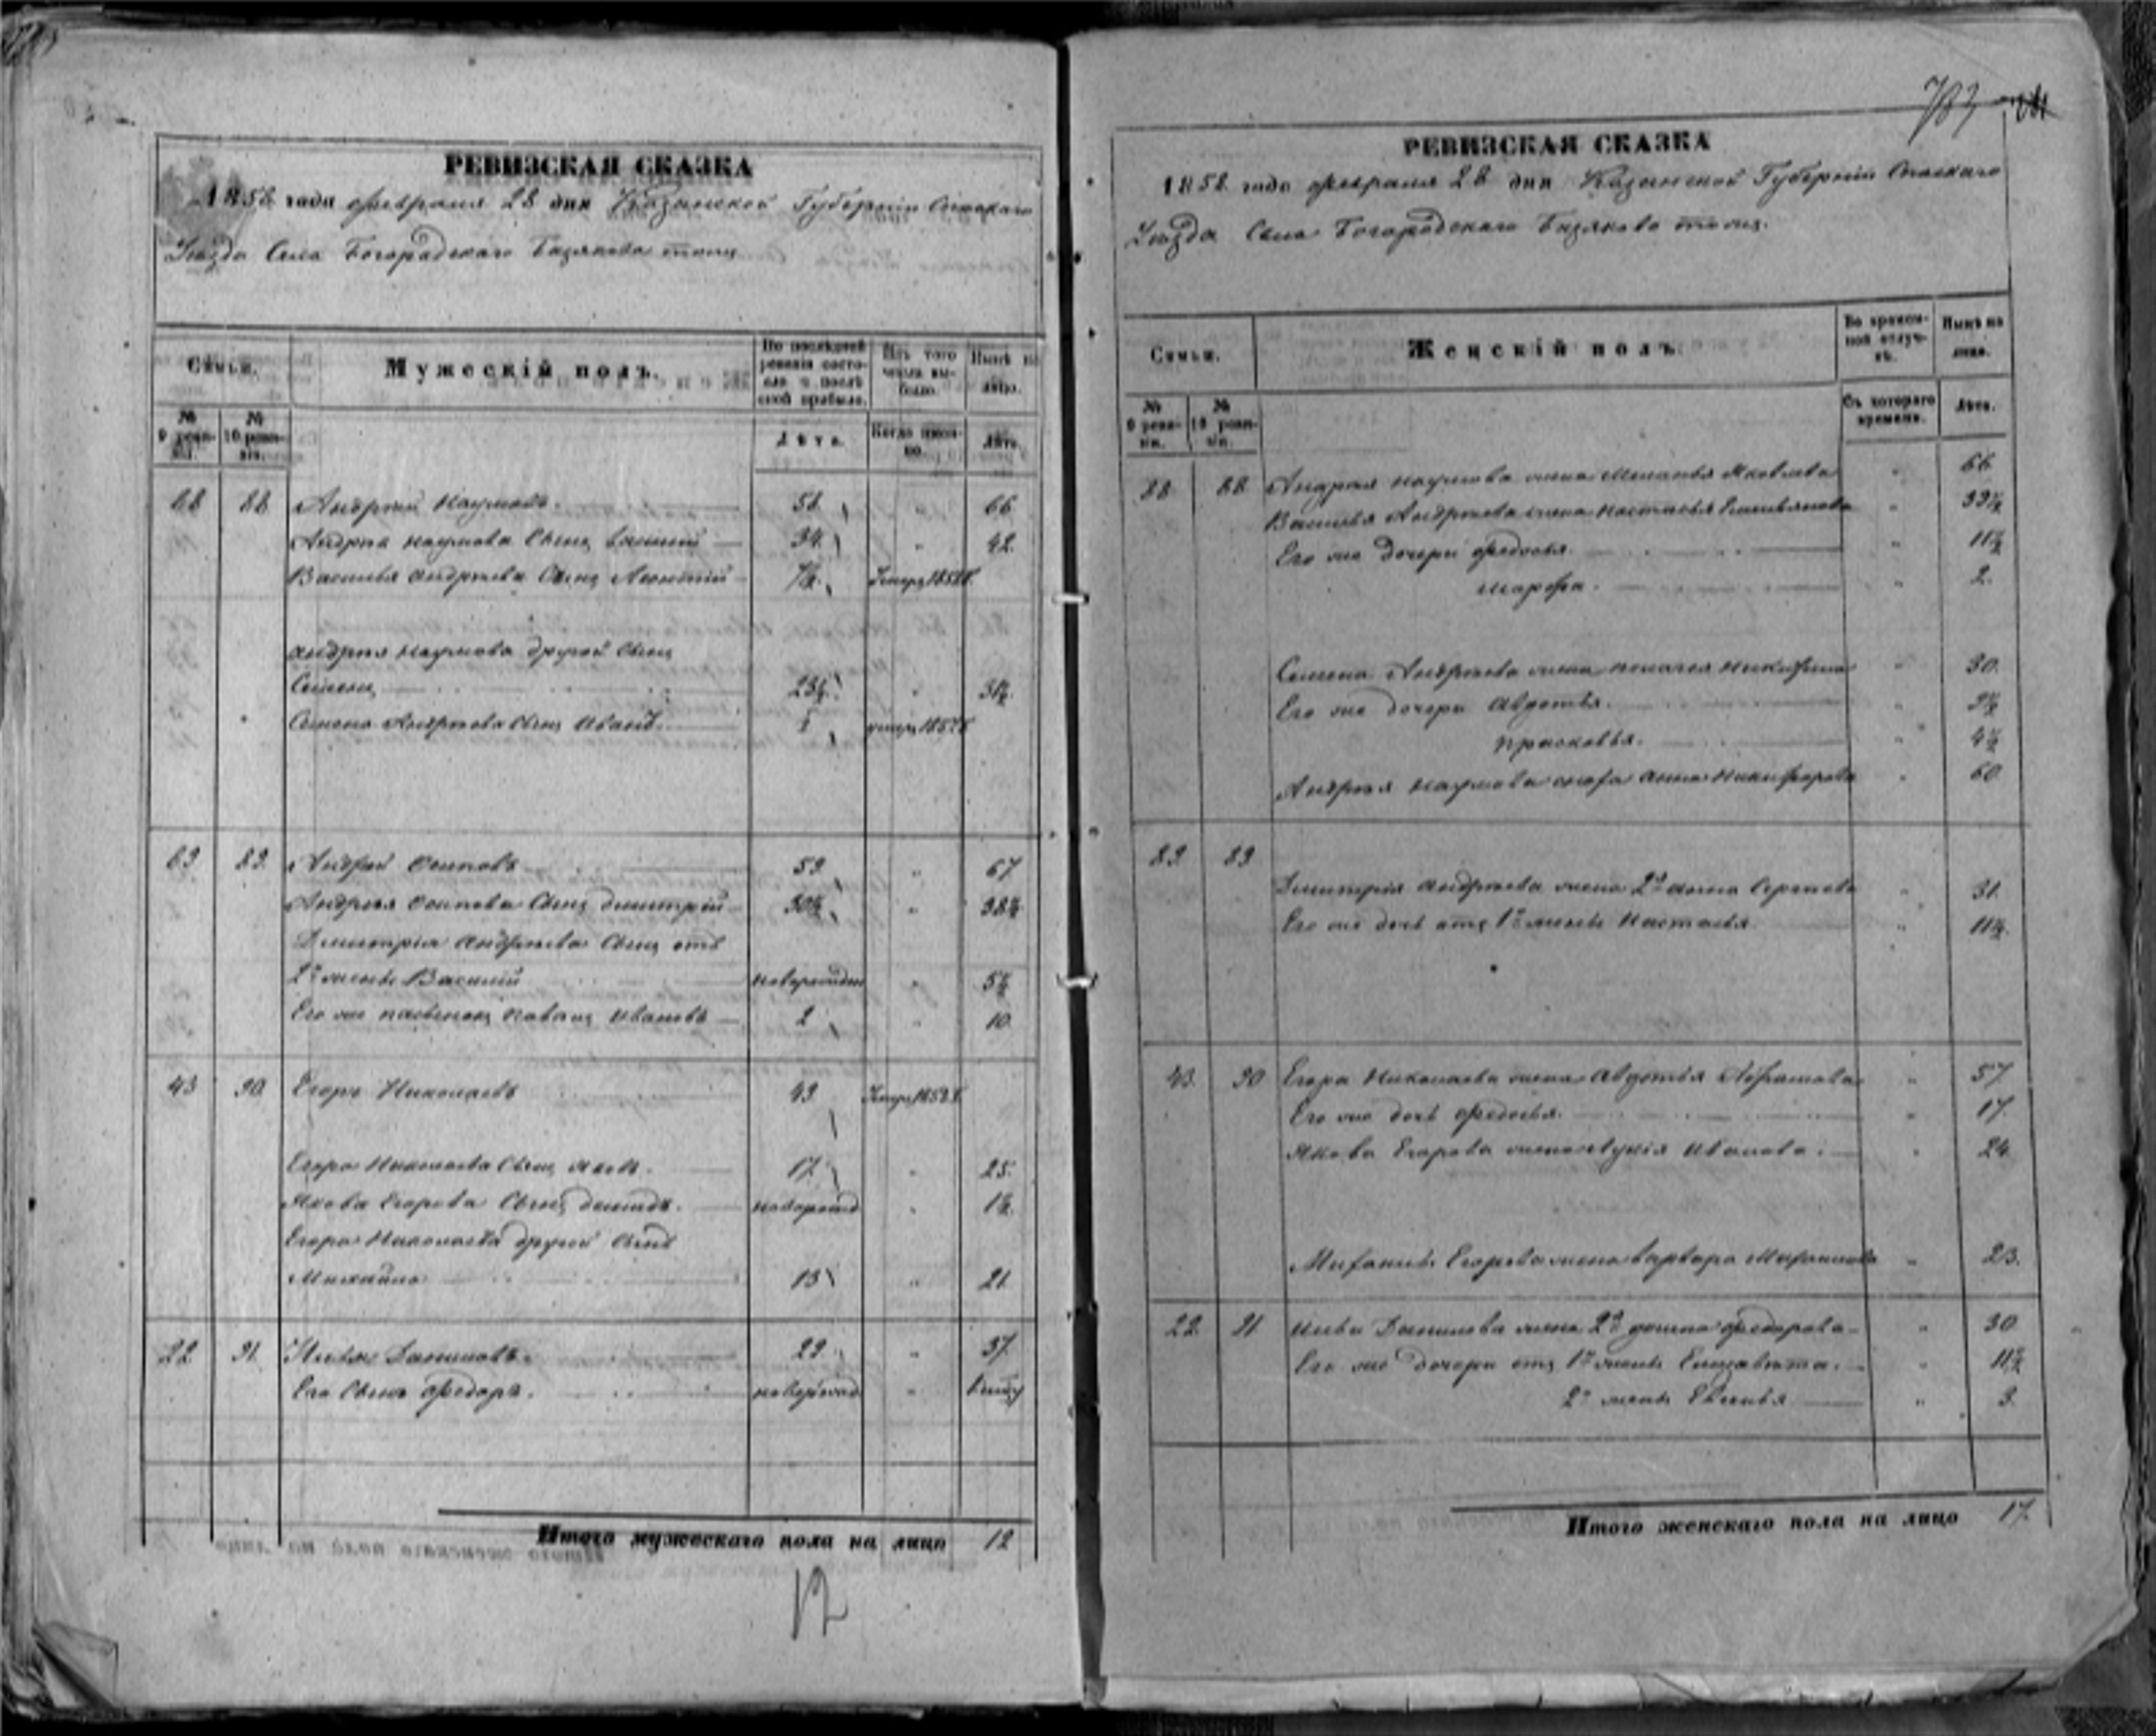 РЕВИЗСКАЯ СКАЗКА
1858 года февраля 28 дня Казанской Губернiи Спаскаго
Уѣзда Села Богородскаго Базякова тожъ
Семьи.
Мужескiй полъ.
По послѣдней ревизiи состояло и послѣ оной прибыло.
Изъ того числа выбыло.
Нынѣ на лицо.
№ 9 ревизiи.
№ 10 ревизiи.
Лѣта.
Когда именно.
Лѣта.
88 88 Андрей Наумовъ. 58 " 66
Андрея Наумова Сынъ Василiй 34 " 42
Василья Андреева Сынъ Леонтiй Умеръ
Андрея Наумова другой Сынъ
Семенъ 23½ " 31½
Семена Андреева Сынъ Иванъ. умеръ
89 89 Андрей Осиповъ 59 " 67
Андрея Осипова Сынъ Дмитрiй 30½ " 38½
Дмитрiя Андреева Сынъ отъ
2й жены Василiй новорожден " 5½
Его же пасынокъ Иванов 2 " 10
43 90 Егоръ Николаевъ 49 Умеръ
Егора Николаева Сынъ Яковъ. 17 " 25.
Якова Егорова Сынъ новорожд " 1½
Егора Николаева другой Сынъ
Михайло 13 " 21
22 91 Илья Даниловъ. 29 " 37
Его Сынъ Федоръ. новорожд "
Итого мужескаго пола на лицо 12
12
783
РЕВИЗСКАЯ СКАЗКА
1858 года февраля 28 дня Казанской Губернiи Спаскаго
Уѣзда Села Богородскаго Базяково тожъ.
Семьи.
Женскiй полъ.
Во временной отлучкѣ.
Нынѣ на лицо.
№ 9 ревизiи.
№ 10 ревизiи.
Съ котораго времени.
Лѣта.
88 88 Андрея Наумова жена Меланья Яковлева " 66
Василья Андреева жена Настасья Емельянова " 39½
Его же дочери Федосья. " 11½
Марфа. " 2.
Семена Андреева жена Пелагея " 30.
Его же дочери Авдотья. " 9½
Прасковья. " 4½
Андрея Наумова Анна Никифорова " 60
89 89
Дмитрiя Андреева жена 2я Анна Сергеева " 31.
Его же дочь отъ 1й жены Настасья " 11½.
43 90 Егора Николаева жена Авдотья Абрамова " 57
Его же дочь Федосья. " 17
Якова Егорова жена Иванова. " 24
Егорова жена Варвара " 23.
22 91 Ильи Данилова жена 2я Федорова " 30
Его же дочери отъ 1й жены Елизавета. " 11½
2й жены " 3.
Итого женскаго пола на лицо 17.